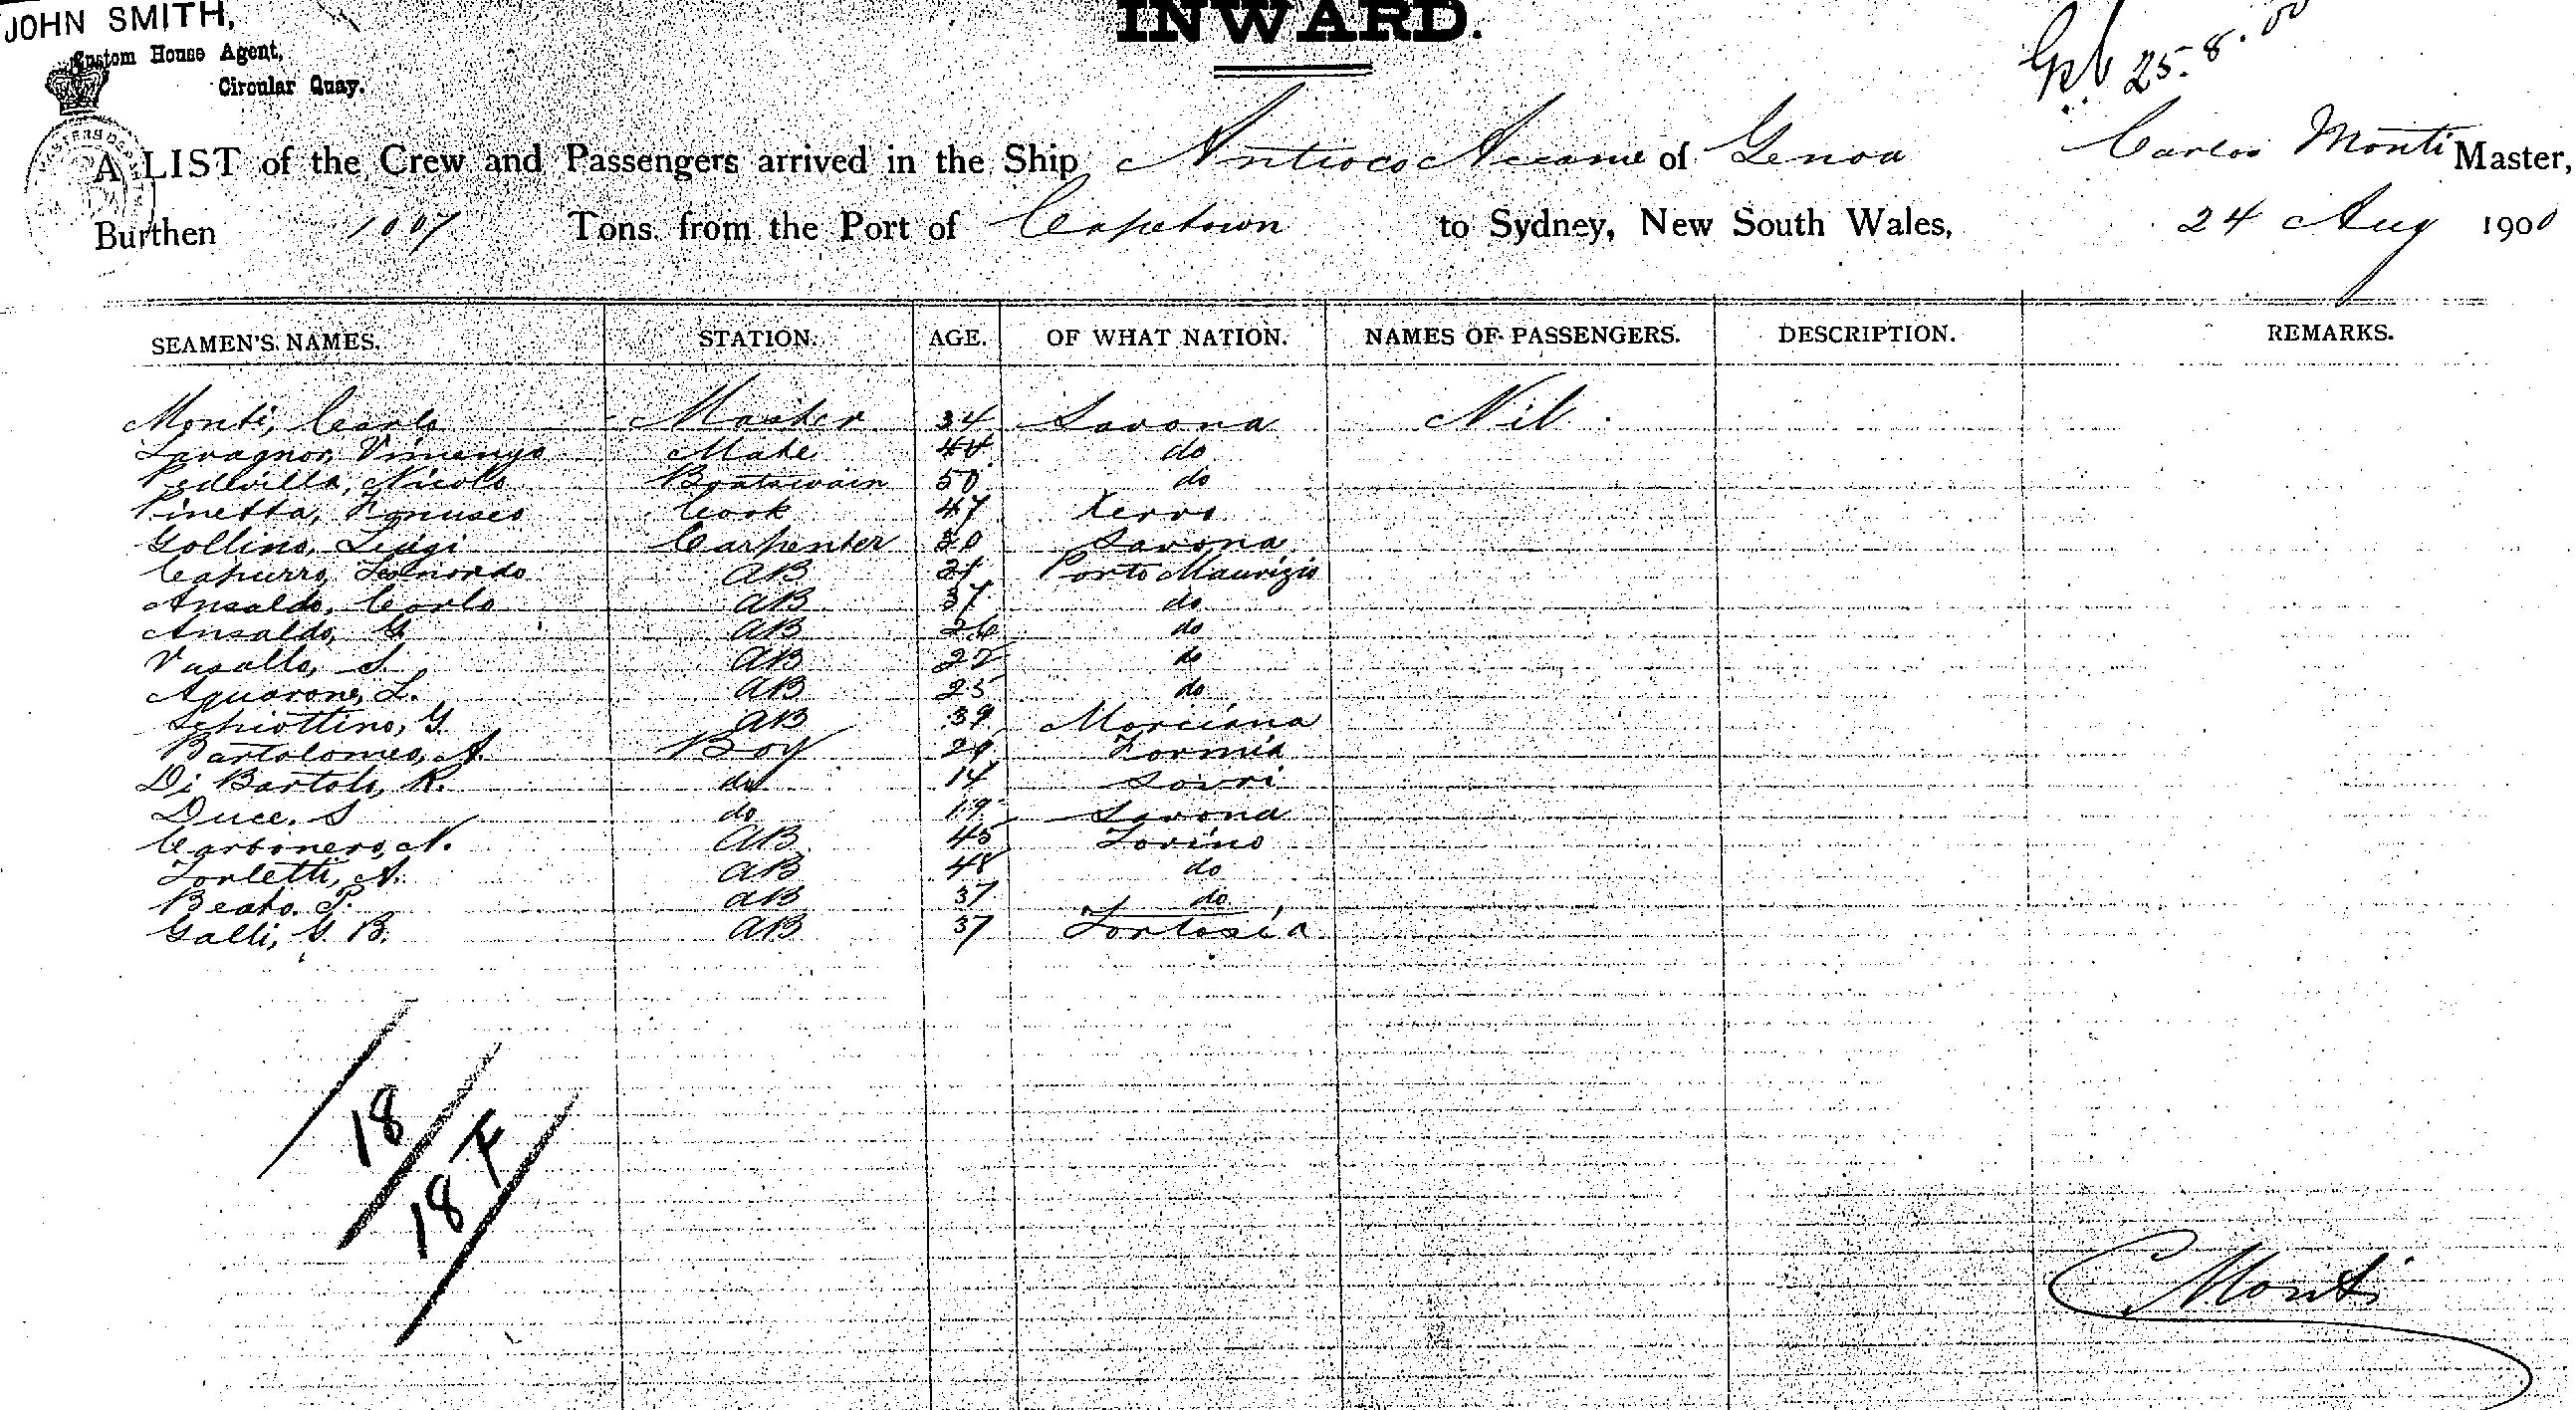 JOHN SMITH,
INWARD.
Custom House Agent,
Circular Quay.
25.8.00
A LIST of the Crew and Passengers arrived in the Ship Antioco Accame of Genoa Carlos Monti Master,
Burthen 1007 Tons from the Port of Capetown to Sydney, New South Wales, 24 Aug 1900
SEAMEN'S NAMES. STATION. AGE. OF WHAT NATION. NAMES OF PASSENGERS. DESCRIPTION. REMARKS.
Monti, Carlo Master 34 Savona Nil
Lavagnor, Vimenyo Mate 44 do
Pedevilla, Nicolo Boatswain 50 do
Pinetta, Cook 47 Xerro
Gollino, Luigi Carpenter 30 Savona
Capurro, Leonordo AB 21 Porto Maurizio
Ansaldo, Carlo AB 37 do
Ansaldo, G. AB 26 do
Vasallo, S. AB 22 do
Aquarone, L. AB 25 do
Schiottino, G. AB 39 Morciana
Bartolomeo, A. Boy 20 Formia
Di Bartolo, R. do 14 Sorri
Duce. S do 19 Savona
Carbonero, N. AB 45 Torino
Torletti, A. AB 48 do
Beato. P. AB 37 do
Galli, G. B. AB 37 Tortosia
18
18 F
C Monti